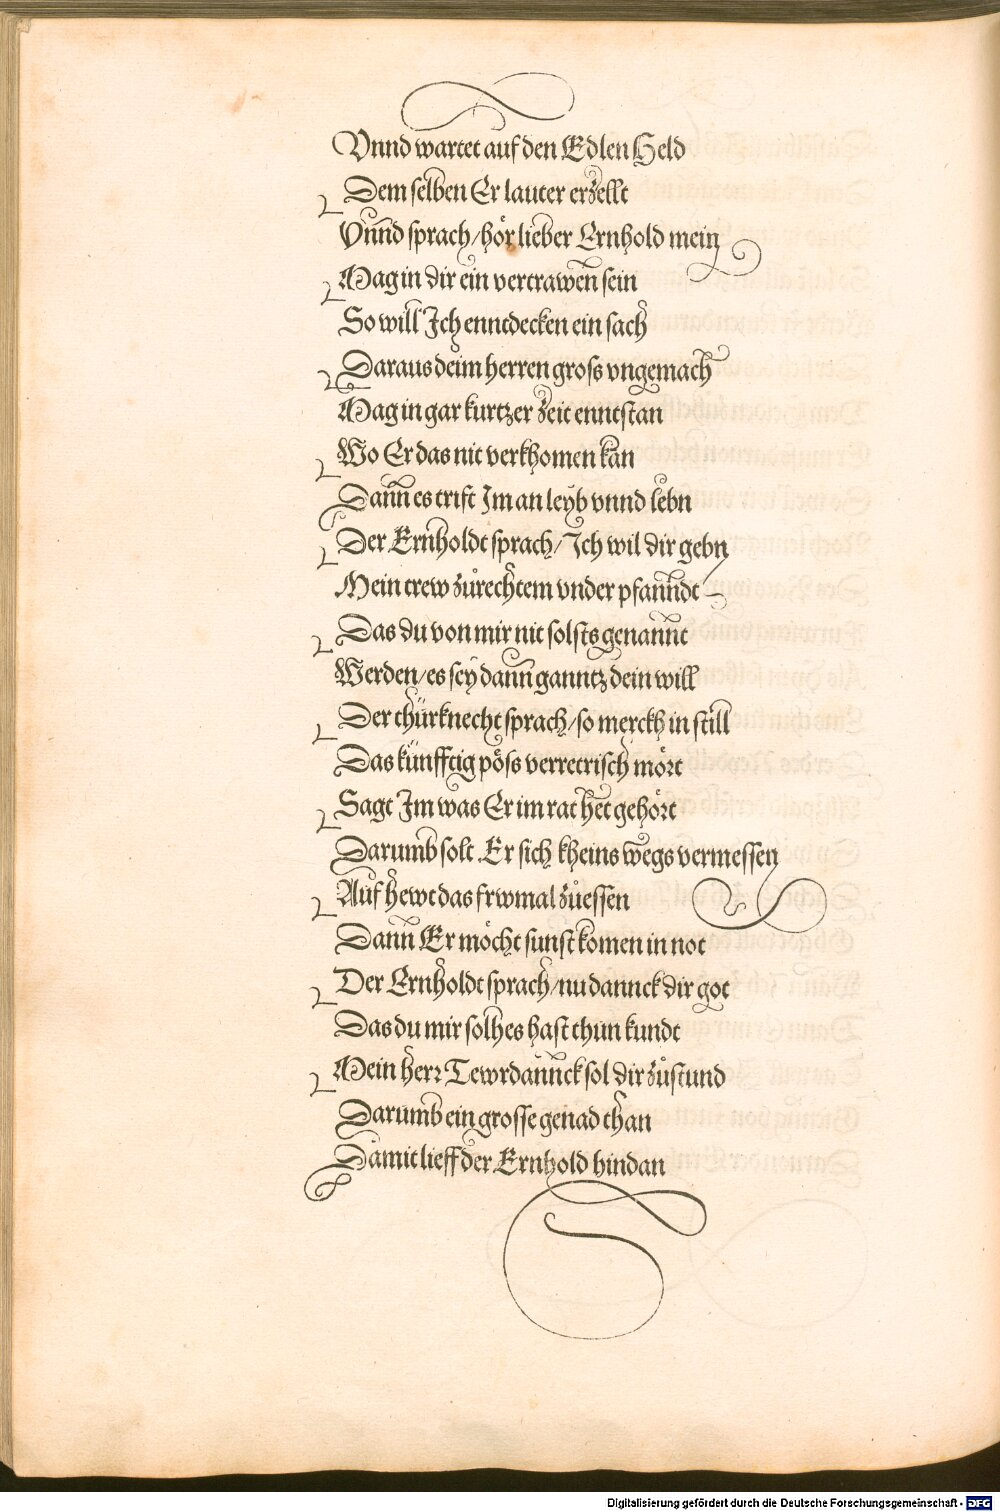 Vnnd wartet auf den Edlen Held
Dem selben Er lauter erzellt
Vnnd sprach/hör lieber Ernhold mein
Mag in dir ein vertrawen sein
So will Ich enntdecken ein sach
Daraus deim herren gross vngemach
Mag in gar kurtzer zeit enntstan
Wo Er das nit verkhomen kan
Dann es trift Im an leyb vnnd lebn
Der Ernholdt sprach/Ich wil dir gebn
Mein trew zůrechtem vnder pfanndt
Das du von mir nit solsts genannt
Werden/es sey dann ganntz dein will
Der thürknecht sprach/so merckh in still
Das künfftig pöss verretrisch mört
Sagt Im was Er im rat het gehört
Darumb solt Er sich kheins wegs vermessen
Auf hewt das frwmal zůessen
Dann Er möcht sunst komen in not
Der Ernholdt sprach/nu dannck dir got
Das du mir solhes hast thun kundt
Mein herr Tewrdannck sol dir zůstund
Darumb ein grosse genad than
Damit lieff der Ernhold hindan
Digitalisierung gefördert durch die Deutsche Forschungsgemeinschaft - DFG